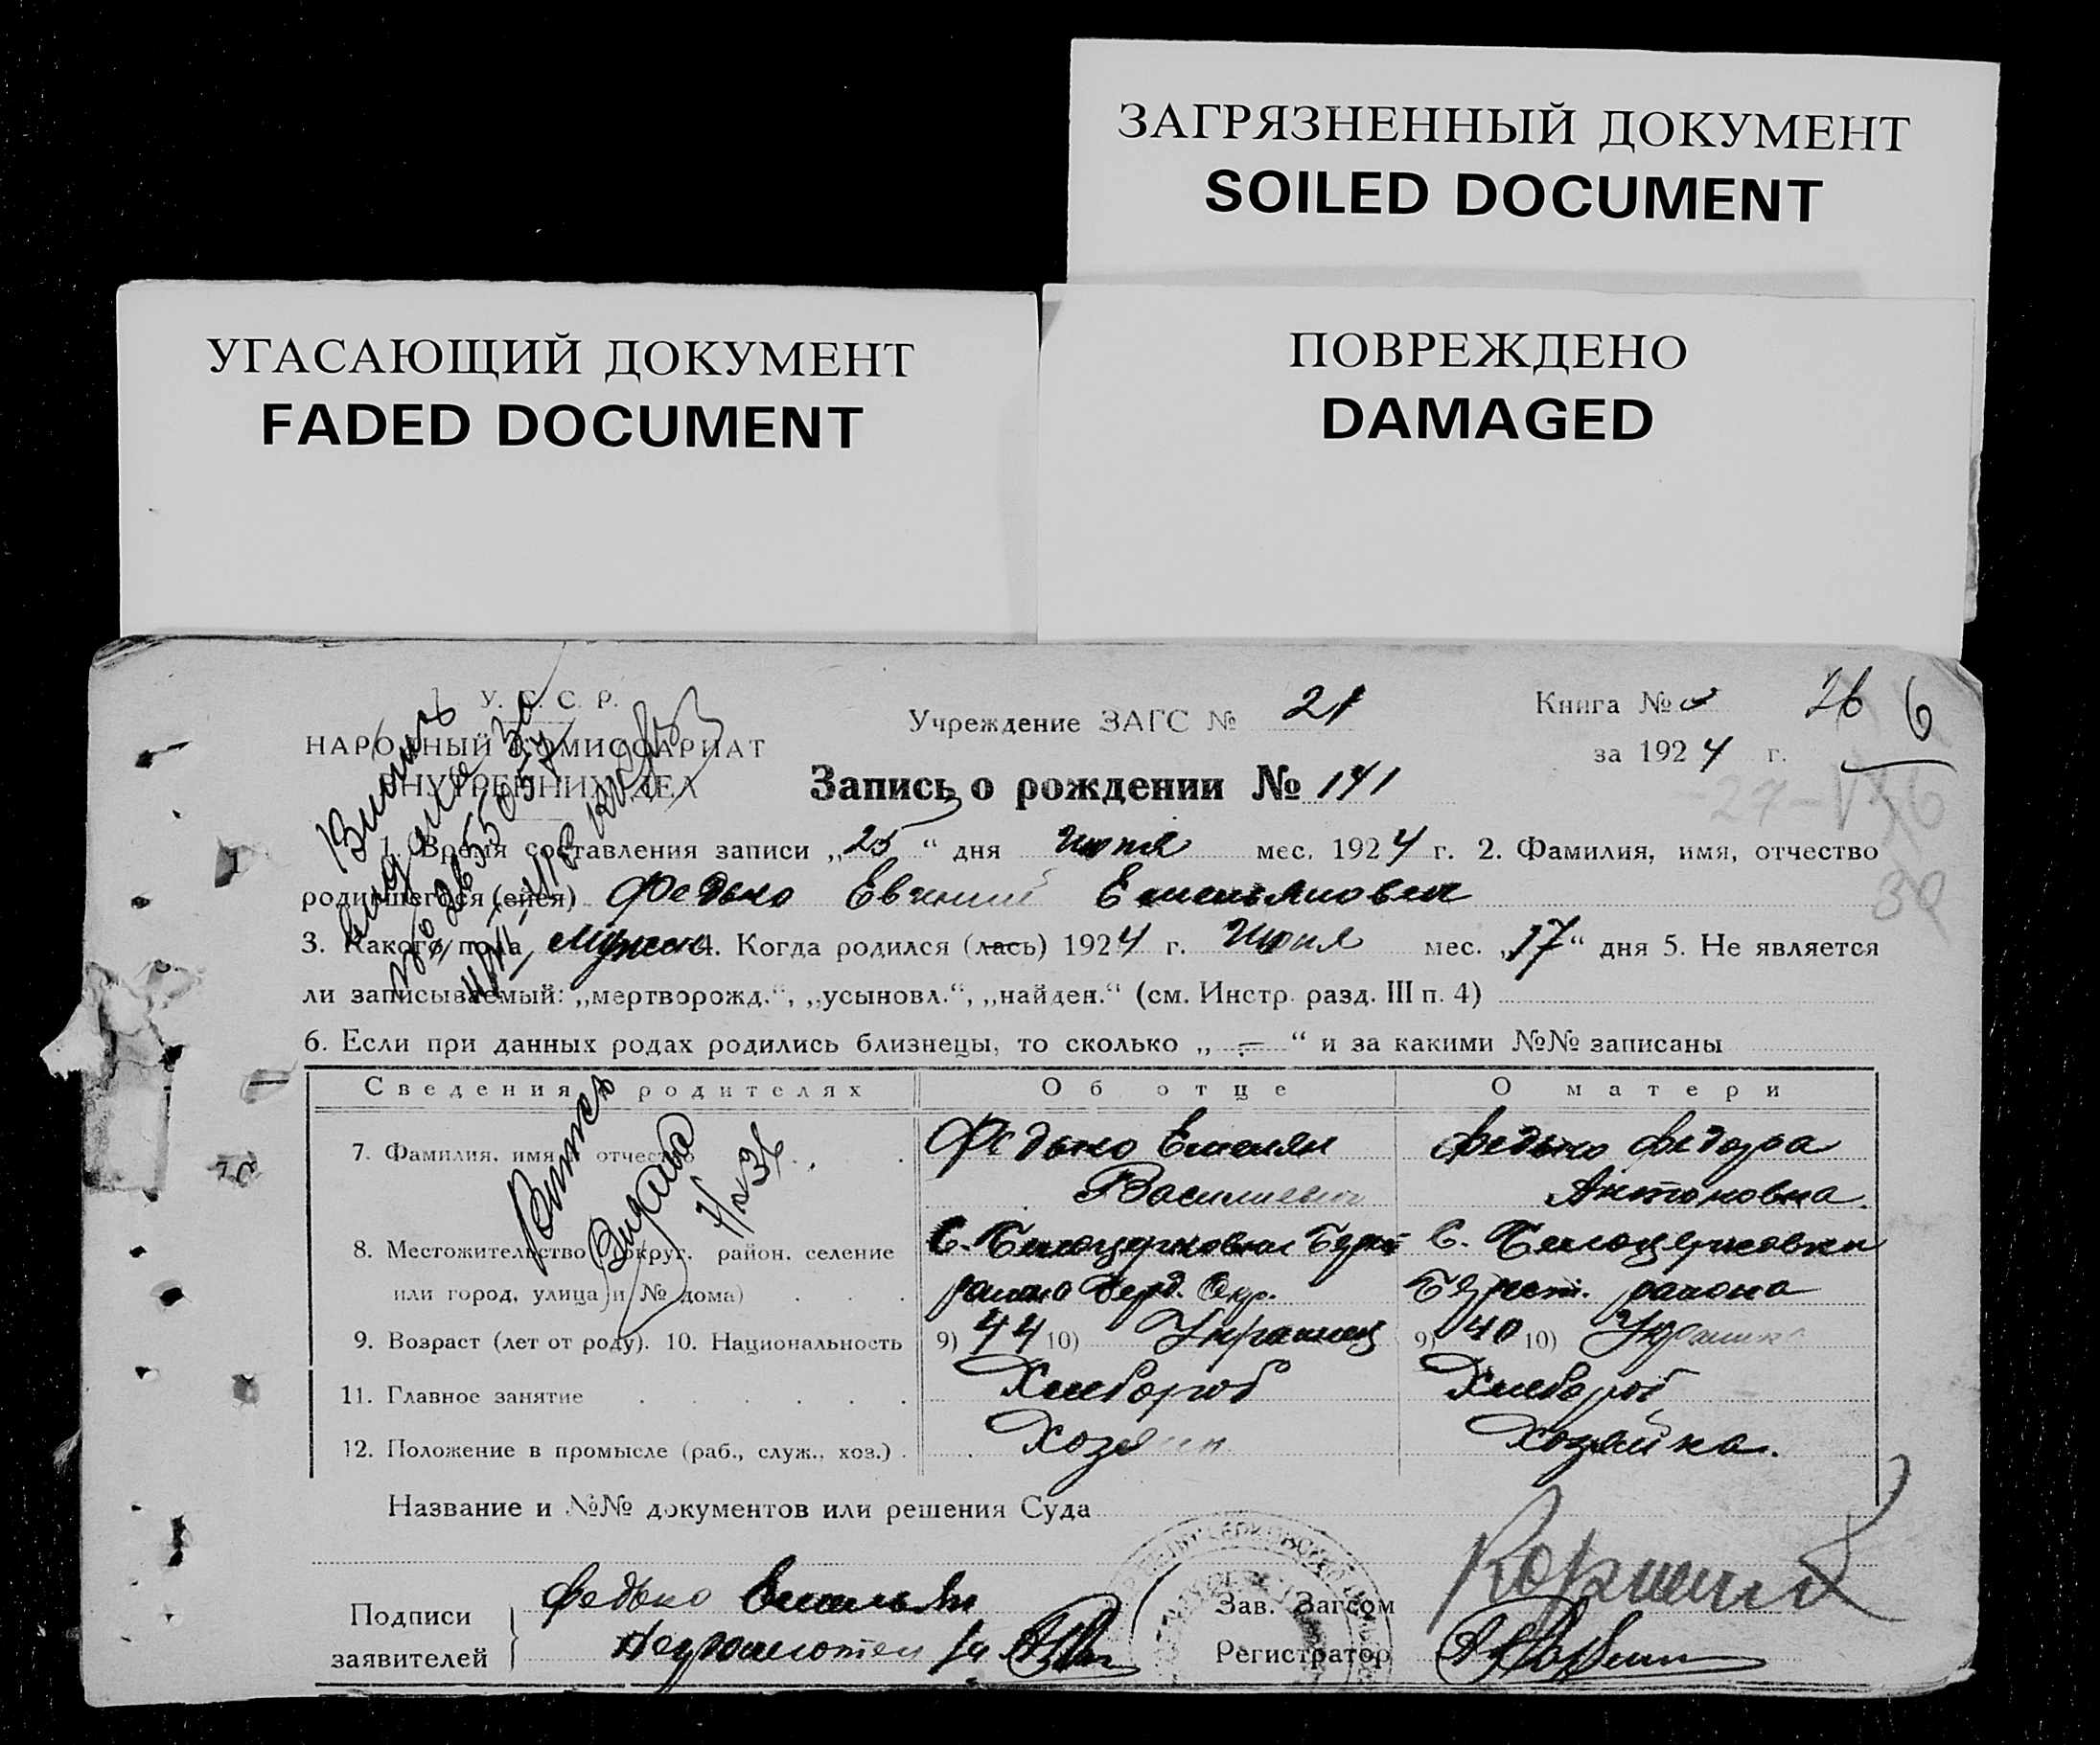 ЗАГРЯЗНЕННЫЙ ДОКУМЕНТ
SOILED DOCUMENT
УГАСАЮЩИЙ ДОКУМЕНТ
FADED DOCUMENT
ПОВРЕЖДЕНО
DAMAGED
У. С. С. Р.
НАРОДНЫЙ КОМИССАРИАТ
ВНУТРЕННИХ ДЕЛ
Учреждение ЗАГС № 21
Книга №
26 6
за 1924 г.
Запись о рождении № 141
1. Время составления записи „25“ дня Июня мес. 1924 г. 2. Фамилия, имя, отчество
родившегося (ейся) Федько Евгений Емельянович
3. Какого пола мужск 4. Когда родился (лась) 1924 г. Июня мес. „17“ дня 5. Не является
ли записываемый: „мертворожд.“, „усыновл.“, „найден.“ (см. Инстр. разд. III п. 4)
6. Если при данных родах родились близнецы, то сколько „ – “ и за какими №№ записаны
Сведения о родителях Об отце О матери
7. Фамилия, имя и отчество Федько Емельян Федько Федора
Василиевич Антоновна.
8. Местожительство (округ, район, селение С. Белоцерковка С. Белоцерковки
или город, улица и № дома) района Берд. Окр. Берест. района
9. Возраст (лет от роду). 10. Национальность 9) 44 10) Украинец 9) 40 10) Украинка
11. Главное занятие Хлебороб Хлебороб
12. Положение в промысле (раб., служ., хоз.) Хозяин Хозяйка.
Название и №№ документов или решения Суда
Подписи
заявителей
Федько Емельян
Неграмотен за
Зав. Загсом
Регистратор